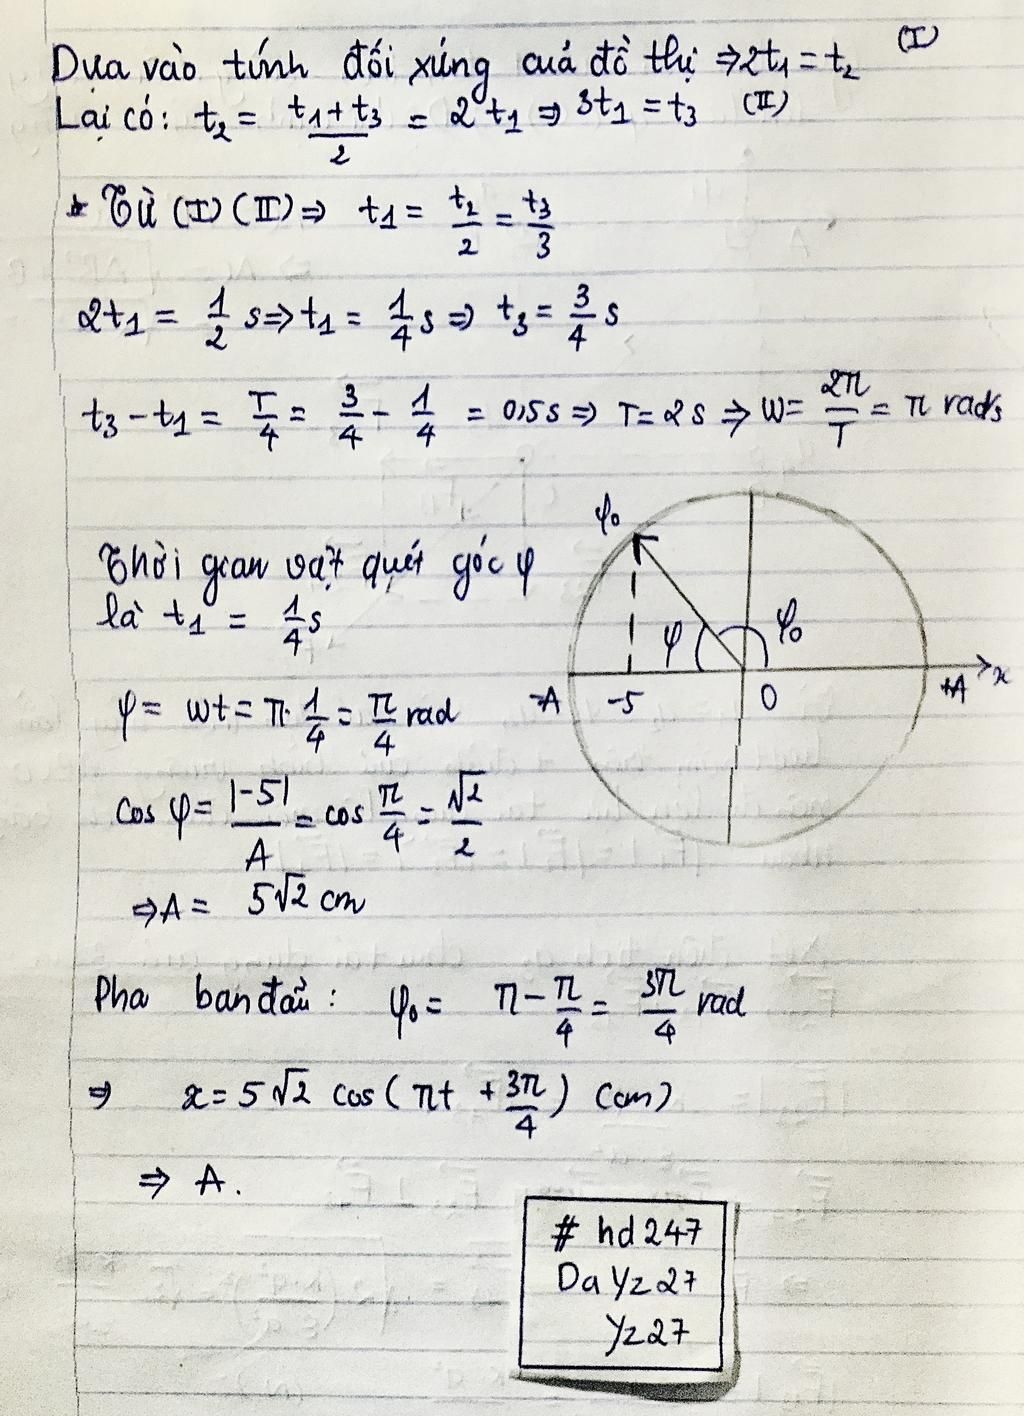 Dựa vào tính đối xứng cuả đồ thị ⇒ 2t₁ = t₂ (I)
Lại có: t₂ = (t₁ + t₃)/2 = 2t₁ ⇒ 3t₁ = t₃ (II)
* Từ (I) (II) ⇒ t₁ = t₂/2 = t₃/3
2t₁ = 1/2 s ⇒ t₁ = 1/4 s ⇒ t₃ = 3/4 s
t₃ − t₁ = T/4 = 3/4 − 1/4 = 0,5s ⇒ T = 2s ⇒ W = 2π/T = π rad/s
Thời gian vật quét góc φ
là t₁ = 1/4 s
φ = wt = π · 1/4 = π/4 rad
cos φ = |−5|/A = cos π/4 = √2/2
⇒ A = 5√2 cm
φ₀
φ
φ₀
-A
-5
O
+A
x
Pha ban đầu: φ₀ = π − π/4 = 3π/4 rad
⇒ x = 5√2 cos(πt + 3π/4) (cm)
⇒ A.
# hd247
DaYz27
Yz27